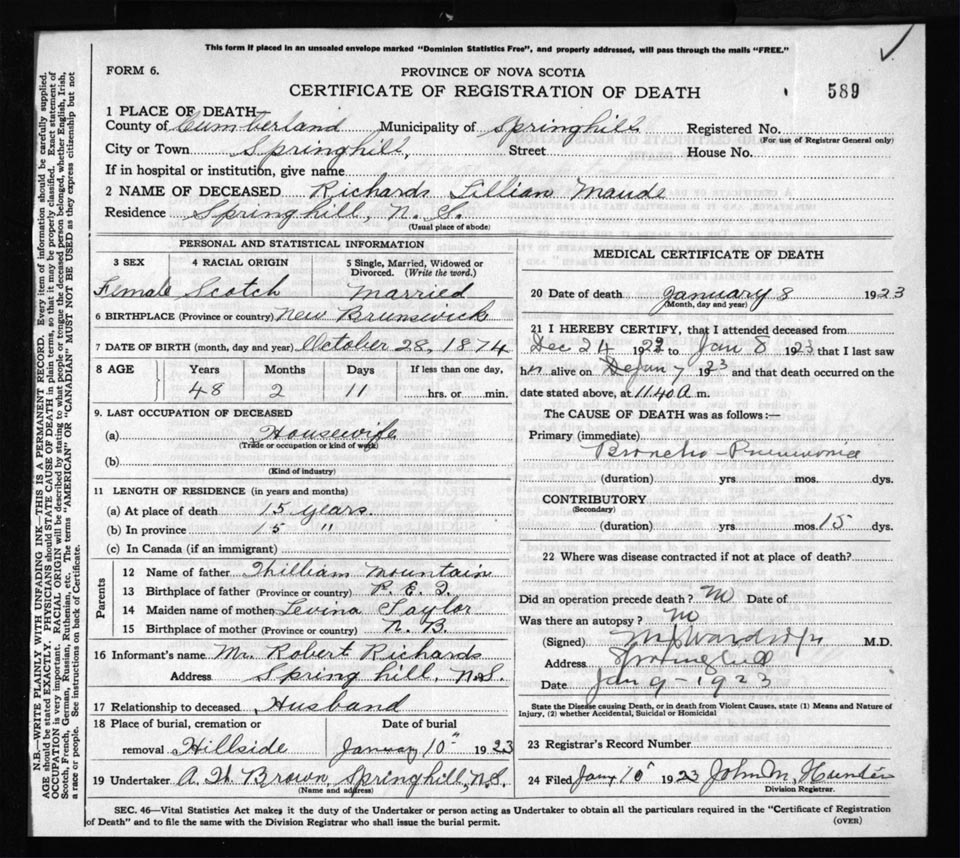 This form if placed in an unsealed envelope marked "Dominion Statistics Free", and properly addressed, will pass through the mails "FREE."
FORM 6.
PROVINCE OF NOVA SCOTIA
CERTIFICATE OF REGISTRATION OF DEATH
589
1 PLACE OF DEATH
County of Cumberland Municipality of Springhill Registered No.
(For use of Registrar General only)
City or Town Springhill, Street House No.
If in hospital or institution, give name
2 NAME OF DECEASED Richards Lillian Maude
Residence Springhill, N. S.
(Usual place of abode)
PERSONAL AND STATISTICAL INFORMATION
3 SEX 4 RACIAL ORIGIN 5 Single, Married, Widowed or Divorced. (Write the word.)
Female Scotch Married
6 BIRTHPLACE (Province or country) New Brunswick
7 DATE OF BIRTH (month, day and year) October 28, 1874
8 AGE Years Months Days If less than one day,
48 2 11 hrs. or min.
9. LAST OCCUPATION OF DECEASED
(a) Housewife
(Trade or occupation or kind of work)
(b)
(Kind of industry)
11 LENGTH OF RESIDENCE (in years and months)
(a) At place of death 15 years.
(b) In province 15 "
(c) In Canada (if an immigrant)
Parents
12 Name of father William Mountain
13 Birthplace of father (Province or country) P. E. I.
14 Maiden name of mother Levina Taylor
15 Birthplace of mother (Province or country) N. B.
16 Informant's name Mr. Robert Richards
Address Spring hill, N.S.
17 Relationship to deceased Husband
18 Place of burial, cremation or removal Hillside
Date of burial January 10" 1923
19 Undertaker A. H. Brown, Springhill, N.S.
(Name and address)
MEDICAL CERTIFICATE OF DEATH
20 Date of death January 8 1923
(Month, day and year)
21 I HEREBY CERTIFY, that I attended deceased from
Dec 24 1922 to Jan 8 1923 that I last saw
her alive on Jan 7 1923 and that death occurred on the
date stated above, at 11.40 a m.
The CAUSE OF DEATH was as follows:—
Primary (immediate)
Broncho-Pneumonia
(duration) yrs. mos. dys.
CONTRIBUTORY
(Secondary)
(duration) yrs. mos. 15 dys.
22 Where was disease contracted if not at place of death?
Did an operation precede death? No Date of
Was there an autopsy? No
(Signed) M.D.
Address Springhill
Date Jan 9-1923
State the Disease causing Death, or in death from Violent Causes, state (1) Means and Nature of Injury, (2) whether Accidental, Suicidal or Homicidal
23 Registrar's Record Number
24 Filed Jany 10" 1923 John M. Hunter
Division Registrar.
SEC. 46—Vital Statistics Act makes it the duty of the Undertaker or person acting as Undertaker to obtain all the particulars required in the "Certificate of Registration
of Death" and to file the same with the Division Registrar who shall issue the burial permit.
(OVER)
N.B.—WRITE PLAINLY WITH UNFADING INK—THIS IS A PERMANENT RECORD. Every item of information should be carefully supplied.
AGE should be stated EXACTLY. PHYSICIANS should STATE CAUSE OF DEATH in plain terms, so that it may be properly classified. Exact statement of
OCCUPATION is very important. RACIAL ORIGIN will be described by stating to what people or tongue the deceased person belonged, whether English, Irish,
Scotch, French, German, Russian, Ruthenian, etc. The terms "AMERICAN" OR "CANADIAN" MUST NOT BE USED as they express citizenship but not
a race or people. See instructions on back of Certificate.